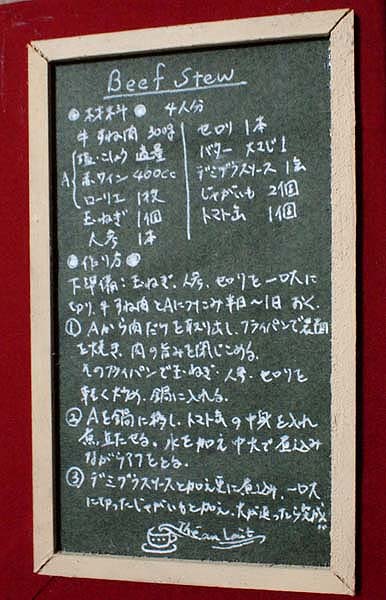 Beef Stew
●材料● 4人分
牛すね肉 300g
A 塩・こしょう 適量
赤ワイン 400cc
ローリエ 1枚
玉ねぎ 1個
人参 1本
セロリ 1本
バター 大さじ1
デミグラスソース 1缶
じゃがいも 2個
トマト缶 1個
●作り方●
下準備:玉ねぎ、人参、セロリを一口大に
切り、牛すね肉とAにつけこみ半日〜1日おく。
① Aから肉だけを取り出し、フライパンで表面
を焼き、肉の旨みを閉じこめる。
そのフライパンで玉ねぎ、人参、セロリを
軽く炒め、鍋に入れる。
② Aを鍋に移し、トマト缶の中身を入れ
煮立たせる。水を加え中火で煮込み
ながらアクをとる。
③ デミグラスソースを加え更に煮込み、一口大
に切ったじゃがいもを加え、火が通ったら完成!!
Thé au Lait